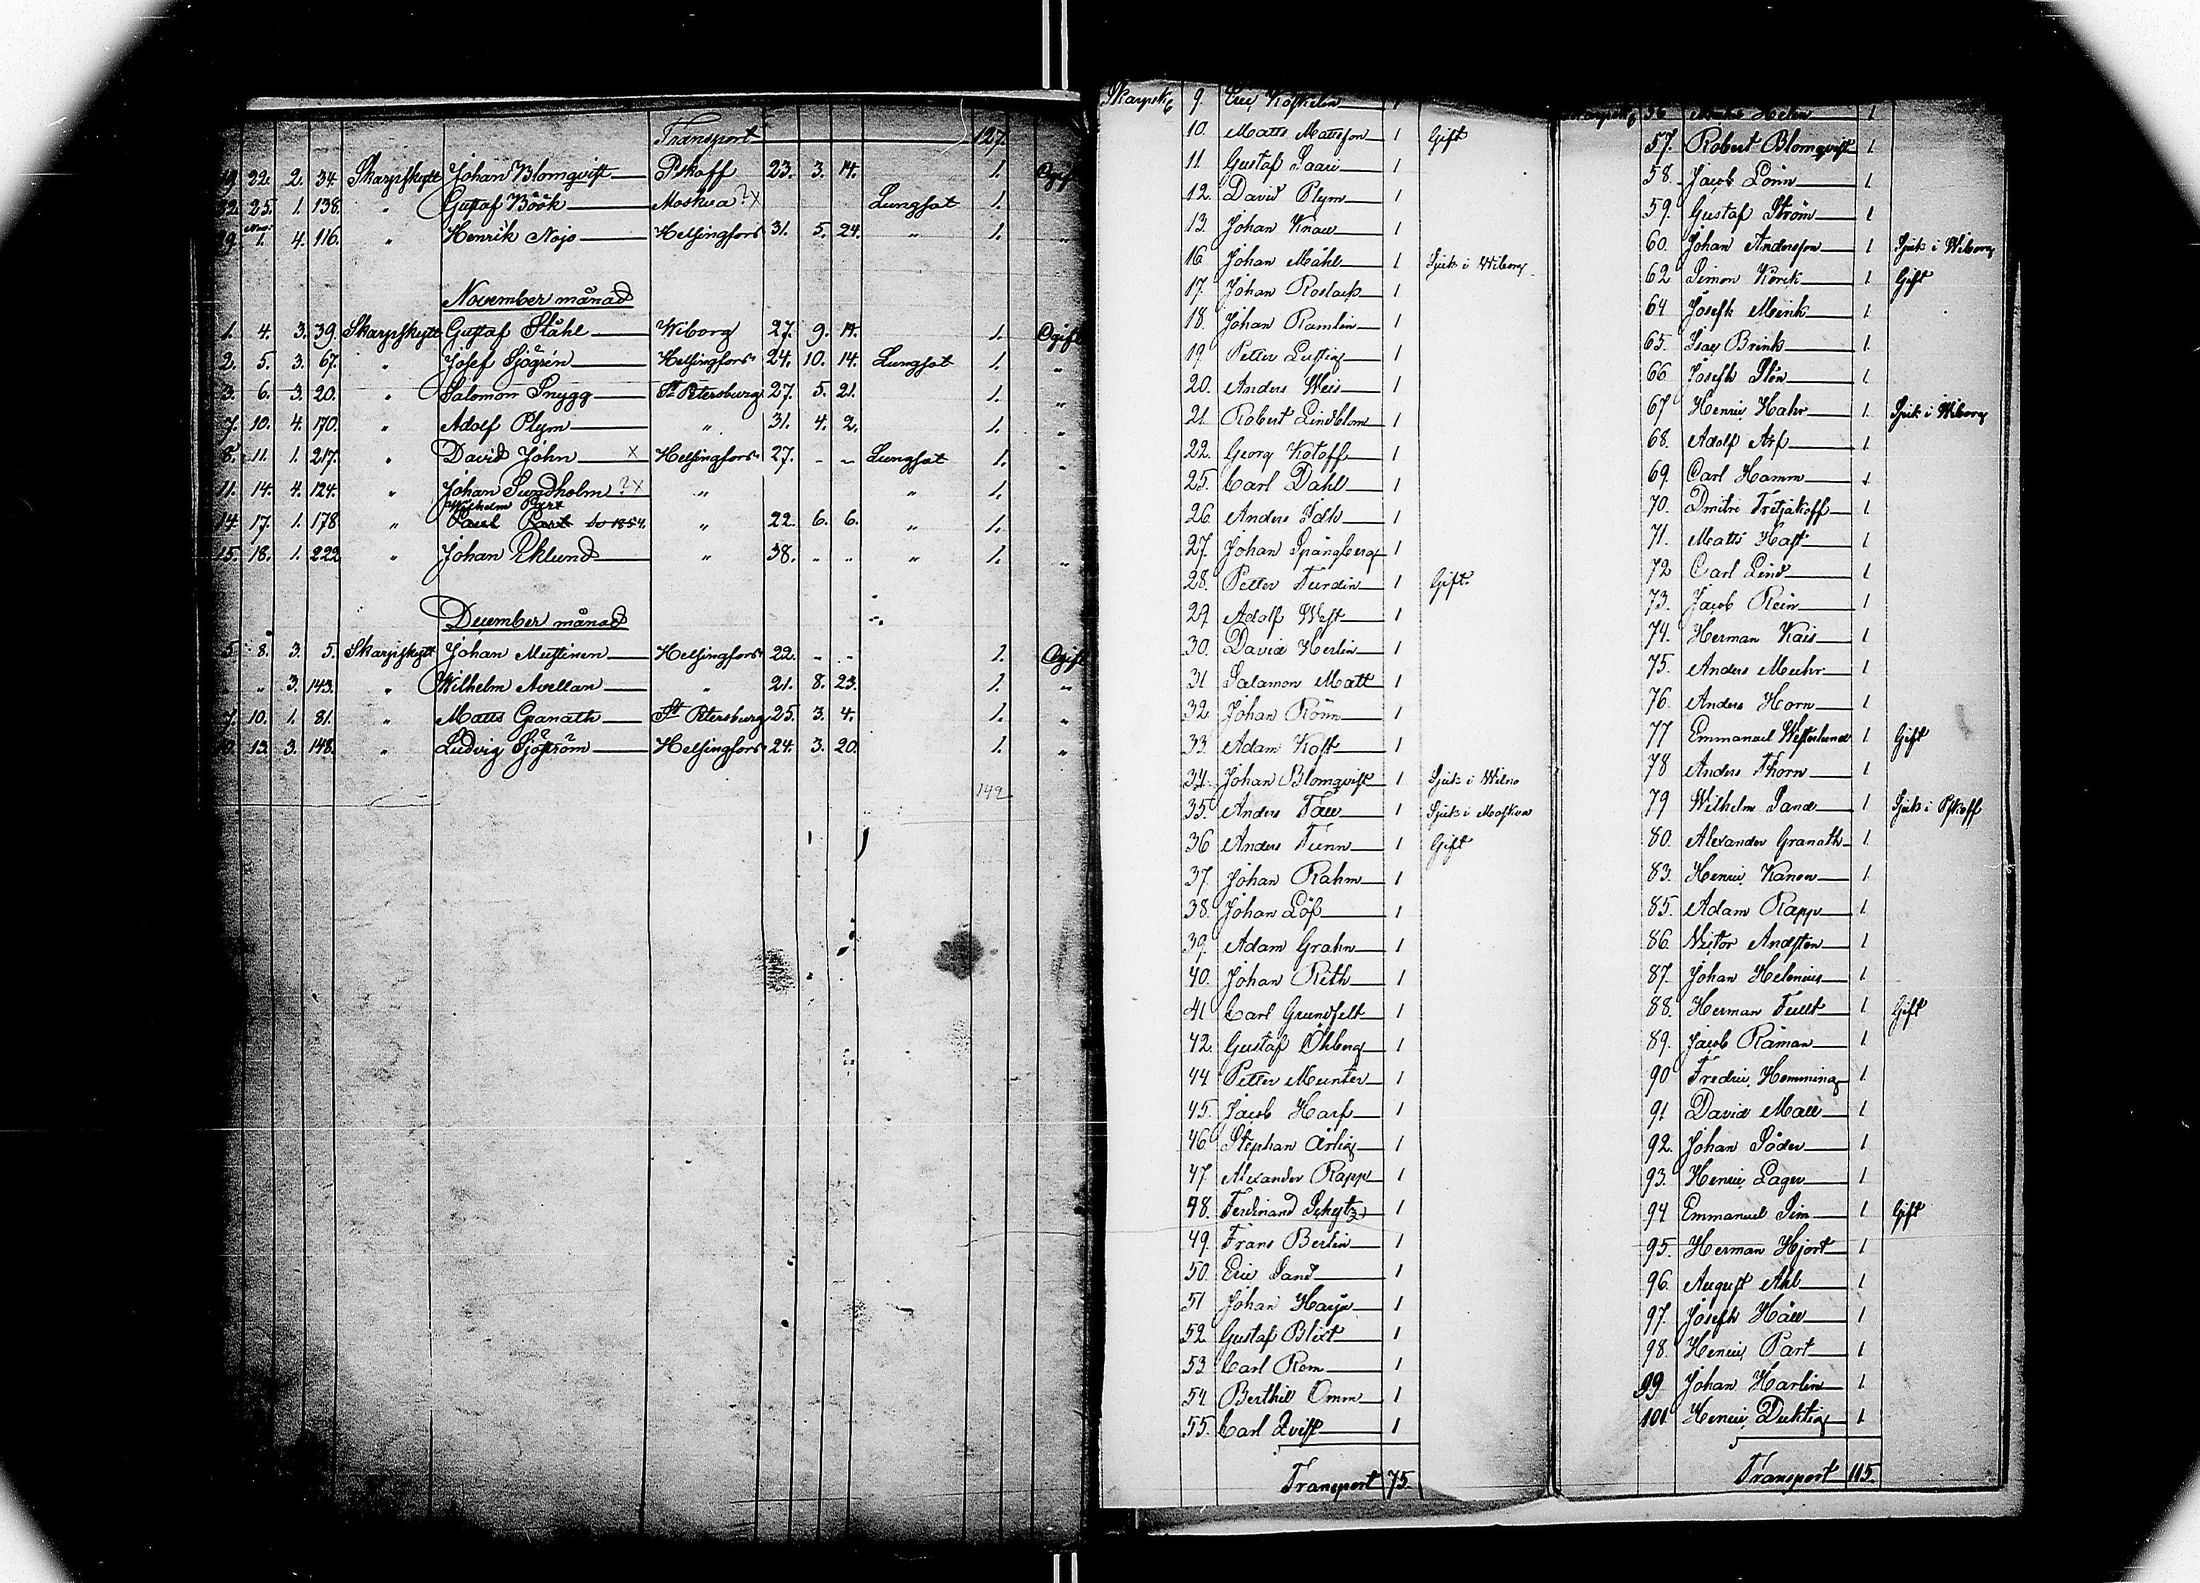 Transport 127.
19. 22. 2. 34. Skarpskytt Johan Blomqvist Pskoff 23. 3. 14. 1. Ogift
22. 25. 1. 138. " Gustaf Böök Moskva ?x Lungsot 1.
29. Nov. 1. 4. 116. " Henrik Nojo Helsingfors 31. 5. 24. " 1. "
November månad
1. 4. 3. 39. Skarpskytt Gustaf Ståhl Wiborg 27. 9. 14. 1. Ogift
2. 5. 3. 67. " Josef Sjögrén Helsingfors 24. 10. 14. Lungsot 1. "
3. 6. 3. 20. " Salomon Snygg St Petersburg 27. 5. 21. 1. "
7. 10. 4. 170. " Adolf Plym " 31. 4. 2. 1. "
8. 11. 1. 217. " David John x Helsingfors 27. - - Lungsot 1. "
11. 14. 4. 124. " Johan Sundholm ?x " " 1.
Wilhelm Part
14. 17. 1. 178 " Paul Part 1854. " 22. 6. 6. " 1.
15. 18. 1. 222 " Johan Eklund " 38. " " " 1. "
December månad
5. 8. 3. 5. Skarpskytt Johan Mustinen Helsingfors 22. - - 1. Ogift
" 3. 143. " Wilhelm Avellan " 21. 8. 23. 1. "
7. 10. 1. 81. " Matts Granath St Petersburg 25. 3. 4. 1. "
10. 13. 3. 148. " Ludvig Sjöström Helsingfors 24. 3. 20. 1. "
149
Skarpsk. 9. Eric Koskelin 1
10. Matts Mattsson 1 Gift
11. Gustaf Saari 1
12. David Plym 1
13. Johan Knau 1
16 Johan Mahl 1 Sjuk i Wiborg
17. Johan 1
18. Johan Ramlin 1
19. Petter Lustig 1
20. Anders Weis 1
21 Robert Lindblom 1
22. Georg Kotoff 1
25. Carl Dahl 1
26. Anders 1
27. Johan Spångberg 1
28. Petter Turdin 1 Gift.
29 Adolf West 1
30. David Herlin 1
31 Salamon Matt 1
32. Johan Rönn 1
33. Adam Kost 1
34. Johan Blomqvist 1 Sjuk i Wilno
35. Anders Tall 1 Sjuk i Moskva
36 Anders Tunn 1 Gift
37. Johan Rahm 1
38. Johan Löf 1
39. Adam Grahn 1
40. Johan Reth 1
41 Carl Grundfelt 1
42. Gustaf Öhberg 1
44 Petter Munter 1
45. Jacob Harf 1
46. Stephan Ärlig 1
47. Alexander Rapp 1
48. Ferdinand Schytz 1
49. Frans Berlin 1
50. Eric Sand 1
51 Johan 1
52. Gustaf Blixt 1
53 Carl Rom 1
54 Berthil Omm 1
55. Carl Qvist 1
Transport 75.
56 Helin 1
57. Robert Blomqvist 1
58. Jacob Lönn 1
59. Gustaf Ström 1
60. Johan Andersson 1 Sjuk i Wiborg
62 Simon Körck 1 Gift
64 Joseph Meink 1
65. Isac Brink 1
66 Joseph Stén 1
67 Henric Hahr 1 Sjuk i Wiborg
68. Adolf Arf 1
69. Carl Hamm 1
70. Dmitri Tretjakoff 1
71. Matts Hast 1
72 Carl Lind 1
73. Jacob Rein 1
74. Herman Kais 1
75. Anders Muhr 1
76. Anders Horn 1
77 Emmanuel Westerlund 1 Gift
78 Anders Thorn 1
79 Wilhelm Sand 1 Sjuk i Pskoff
80. Alexander Granath 1
83. Henric Kanon 1
85. Adam Rapp 1
86. Nestor Andsten 1
87. Johan Helenius 1
88. Herman Tullt 1 Gift
89. Jacob Råman 1
90 Fredric Hemming 1
91 David Mall 1
92. Johan Söder 1
93. Henric Lager 1
94 Emmanuel Sim 1 Gift
95. Herman Hjort 1
96. August Ahl 1
97. Joseph Häll 1
98. Henric Part 1
99 Johan Harlin 1
101 Henric Duktig 1
Transport 115.